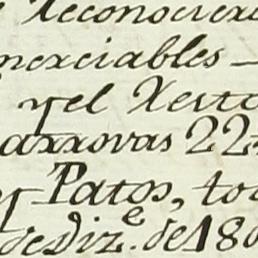 Reconociere
merciables
y el Resto
arrovas 22
Patos, to
de Diz.e de 180